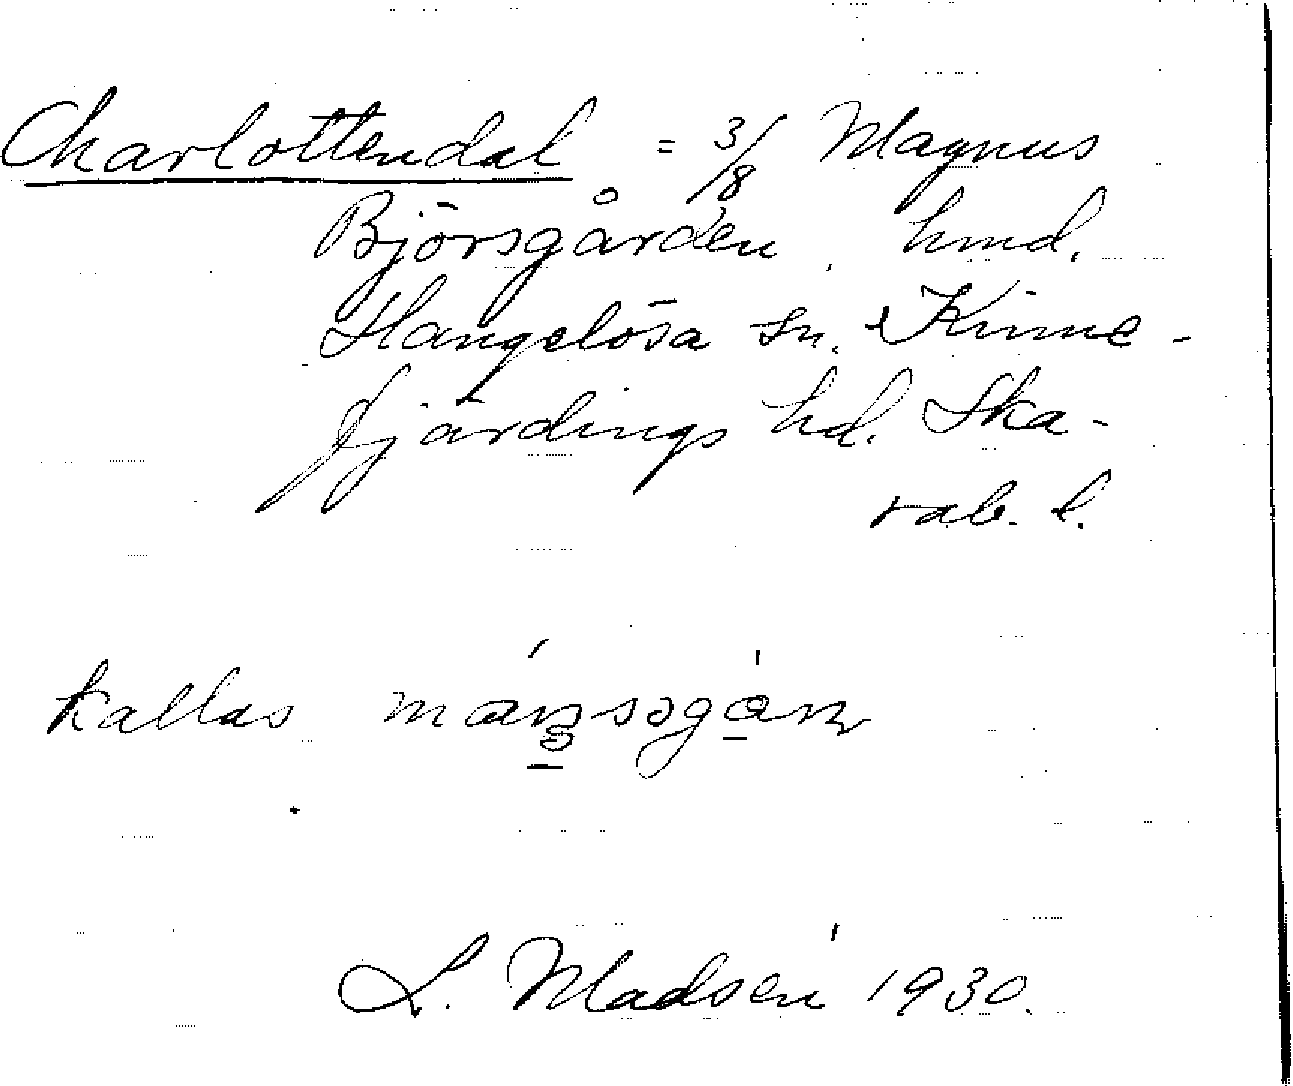 Charlottendal = 3/8 Magnus
Björsgården, hmd.
Hangelösa sn. Kinne-
fjärdings hd. Ska-
rab. l.
kallas
L. Madsén 1930.